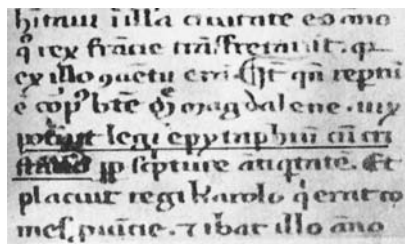 hitaui i illa ciuitate eo ano
qͦ rex francie trāsfretauit. qꝛ
ex illo ꝯuētu erā. Et qn̄ reptū
ē corpꝰ btē mͥ magdalene. uix
potuit legi epytaphiū cū cri
stallo ꝓp sc̄pture ātiqͥtatē. Et
placuit regi karolo qͥ erat co
mes ꝓuīcie. ⁊ ibat illo ano